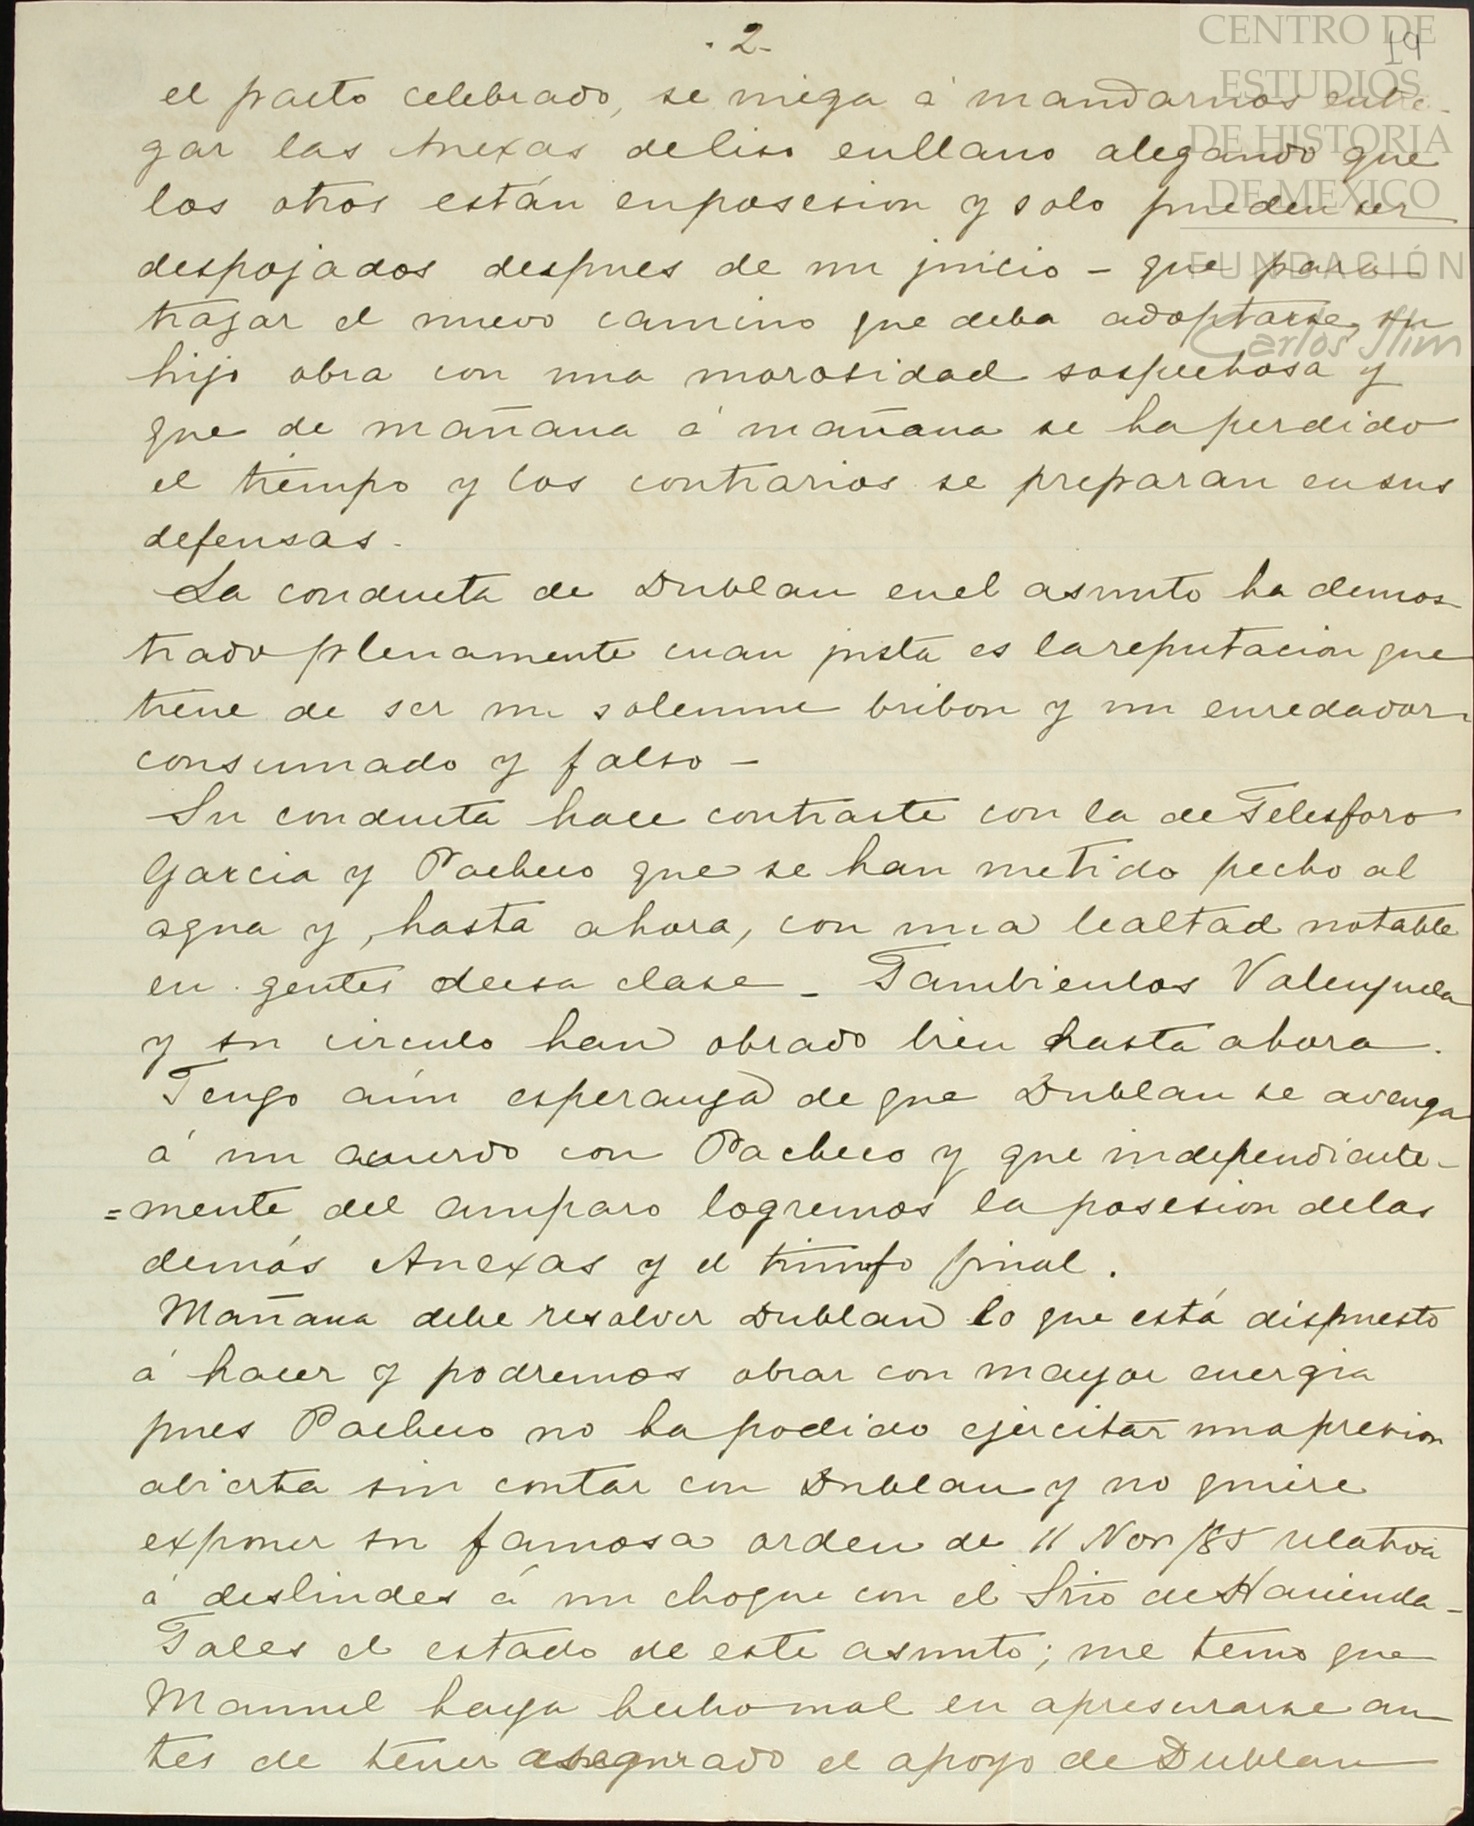 . 2 -
19
CENTRO DE
ESTUDIOS
DE HISTORIA
DE MEXICO
FUNDACIÓN
Carlos Slim
el pacto celebrado, se niega á mandarnos entre-
gar las Anexas deliso enllano alegando que
los otros están enposesion y solo pueden ser
despojados despues de un juicio - que para
trazar el nuevo camino que deba adoptarse, su
hijo obra con una morosidad sospechosa y
que de mañana á mañana se ha perdido
el tiempo y los contrarios se preparan ensus
defensas.
La conducta de Dublan enel asunto ha demos-
trado plenamente cuan justa es lareputacion que
tiene de ser un solemne bribon y un enredador
consumado y falso -
Su conducta hace contraste con la de Telesforo
Garcia y Pacheco que se han metido pecho al
agua y, hasta ahora, con una lealtad notable
en gentes deesa clase - Tambienlos Valenzuela
y su circulo han obrado bien hasta ahora.
Tengo aún esperanza de que Dublan se avenga
á un acuerdo con Pacheco y que independiente-
=mente del amparo logremos la posesion delas
demás Anexas y el triunfo final.
Mañana debe resolver Dublan lo que está dispuesto
á hacer y podremos obrar con mayor energia
pues Pacheco no ha podido ejercitar unapresion
abierta sin contar con Dublan y no quiere
exponer su famosa orden de 11 Nov/85 relativa
á deslindes á un choque con el Srio de Hacienda -
Tales el estado de este asunto; me temo que
Manuel haya hechomal en apresurarse an-
tes de tener asegurado el apoyo de Dublan